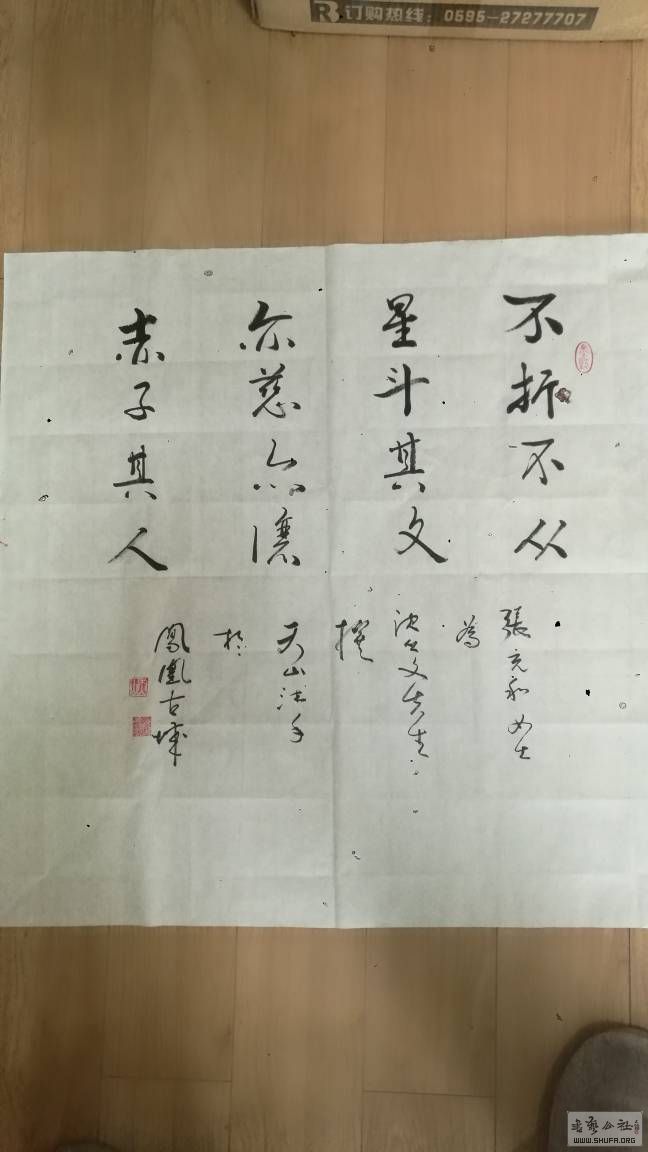 R 订购热线：0595-27277707
不折不从
星斗其文
亦慈亦讓
赤子其人
張充和女士
為
沈从文先生
撰
天山
於
鳳凰古城
书艺公社
WWW.SHUFA.ORG